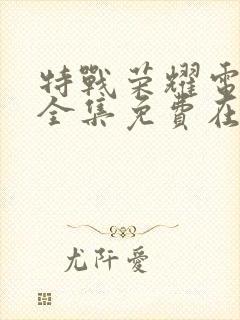 特戰荣耀電
全集免費在
尤阡愛